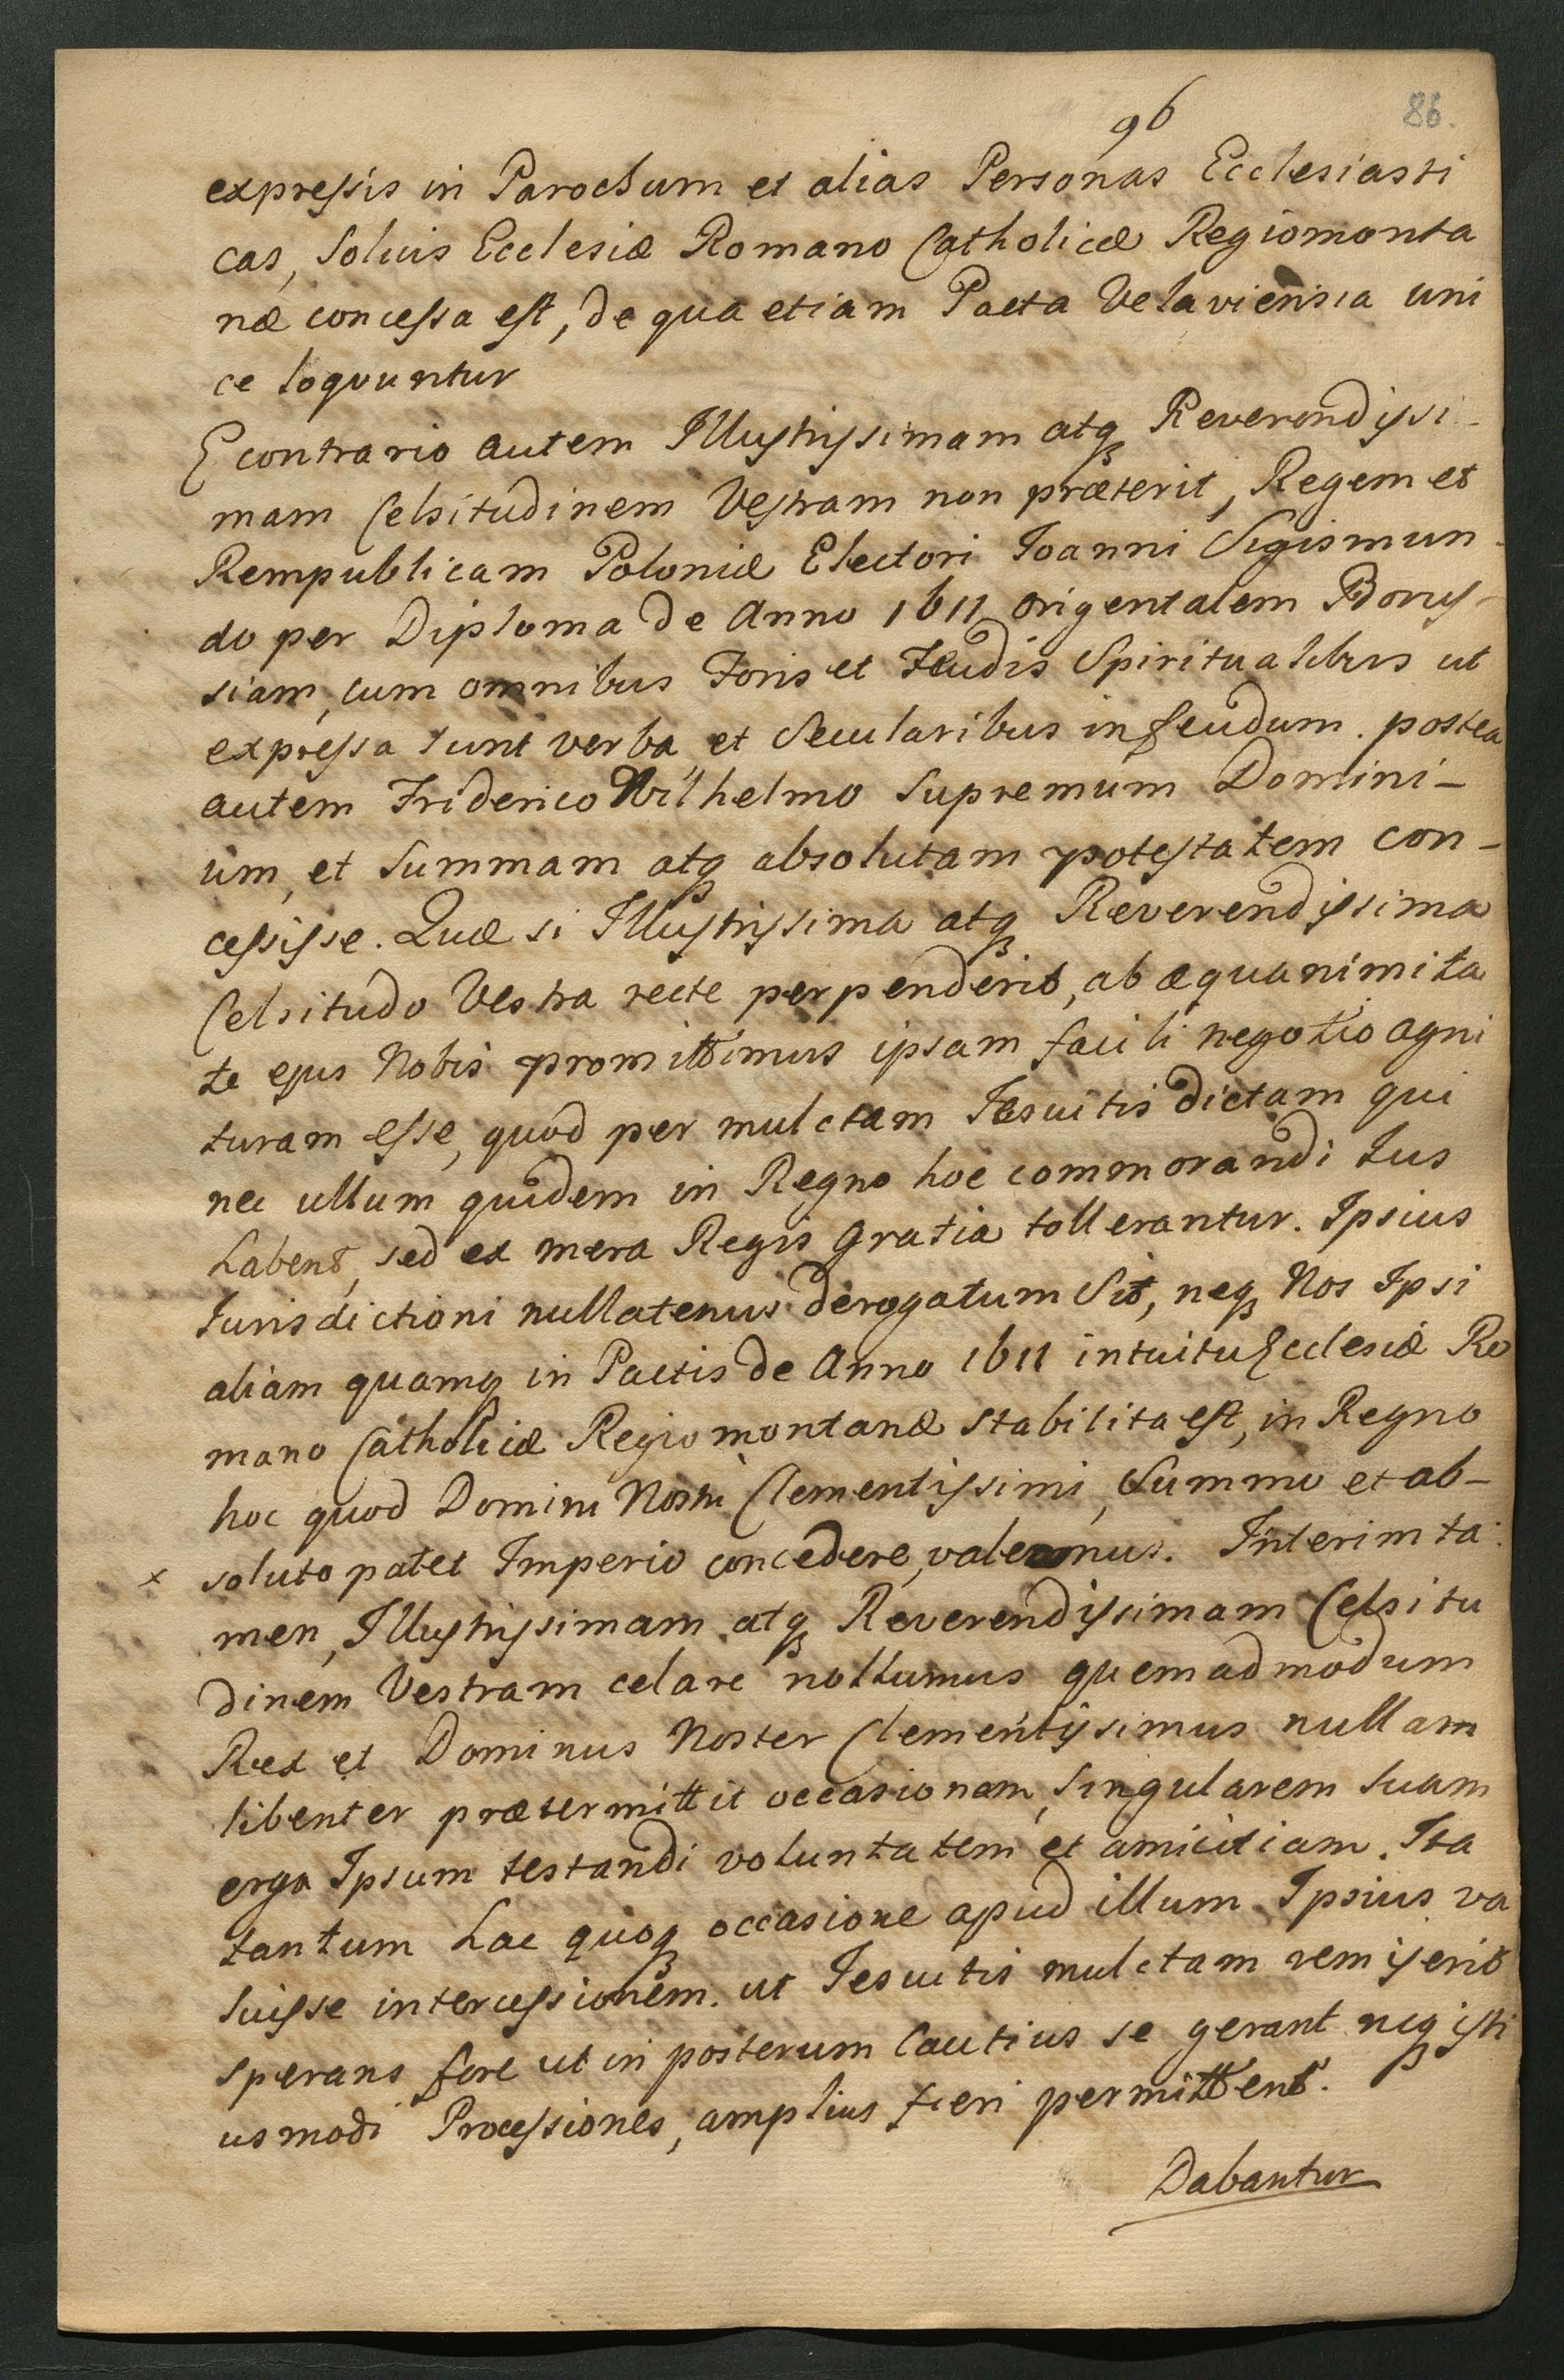 96
86.
expressis in Parochum et alias Personas Ecclesiasti
cas, solius Ecclesiæ Romano Catholicæ Regiomonta
næ concessa est, de qua etiam Pacta Velaviensia uni
ce loquuntur
E contrario autem Illustrissimam atq Reverendissi-
mam Celsitudinem Vestram non præterit, Regem et
Rempublicam Poloniæ Electori Joanni Sigismun-
do per Diploma de Anno 1611 origentalem Borus-
siam, cum omnibus Foris et Feudis Spiritualibus ut
expressa sunt verba, et Secularibus in feudum. postea
autem Friderico Wilhelmo Supremum Domini-
um, et Summam atq absolutam potestatem con-
cessisse. Quæ si Illustrissima atq Reverendissima
Celsitudo Vestra recte perpenderit, ab æquanimita
te ejus Nobis promittimus ipsam facili negotio agni
turam esse, quod per mulctam Jesuitis dictam qui
nec ullum quidem in Regno hoc commorandi Jus
habent, sed ex mera Regis Gratia tollerantur. Ipsius
Jurisdictioni nullatenus derogatum Sit, neq Nos Ipsi
aliam quamq in Pactis de Anno 1611 intuitu Ecclesiæ Ro
mano Catholicæ Regiomontanæ stabilita est, in Regno
hoc quod Domini Nostri Clementissimi, Summo et ab-
x soluto patet Imperio concedere, valemus. Interim ta
men, Illustrissimam atq Reverendissimam Celsitu
dinem Vestram celare nollumus quemadmodum
Rex et Dominus Noster Clementissimus nullam
libenter prætermittit occasionem, Singularem Suam
erga Ipsum testandi voluntatem et amicitiam. Ita
tantum hac quoq occasione apud illum Ipsius va
luisse intercessionem. ut Jesuitis mulctam remiserit
sperans fore ut in posterum Cautius se gerant neq isti
usmodi Processiones, amplius fieri permittent.
Dabantur